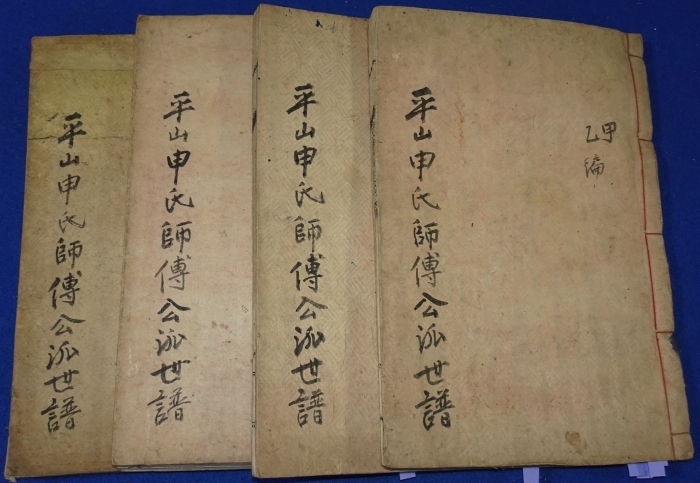 平山申氏師傅公派世譜
甲
乙編
平山申氏師傅公派世譜
平山申氏師傅公派世譜
平山申氏師傅公派世譜